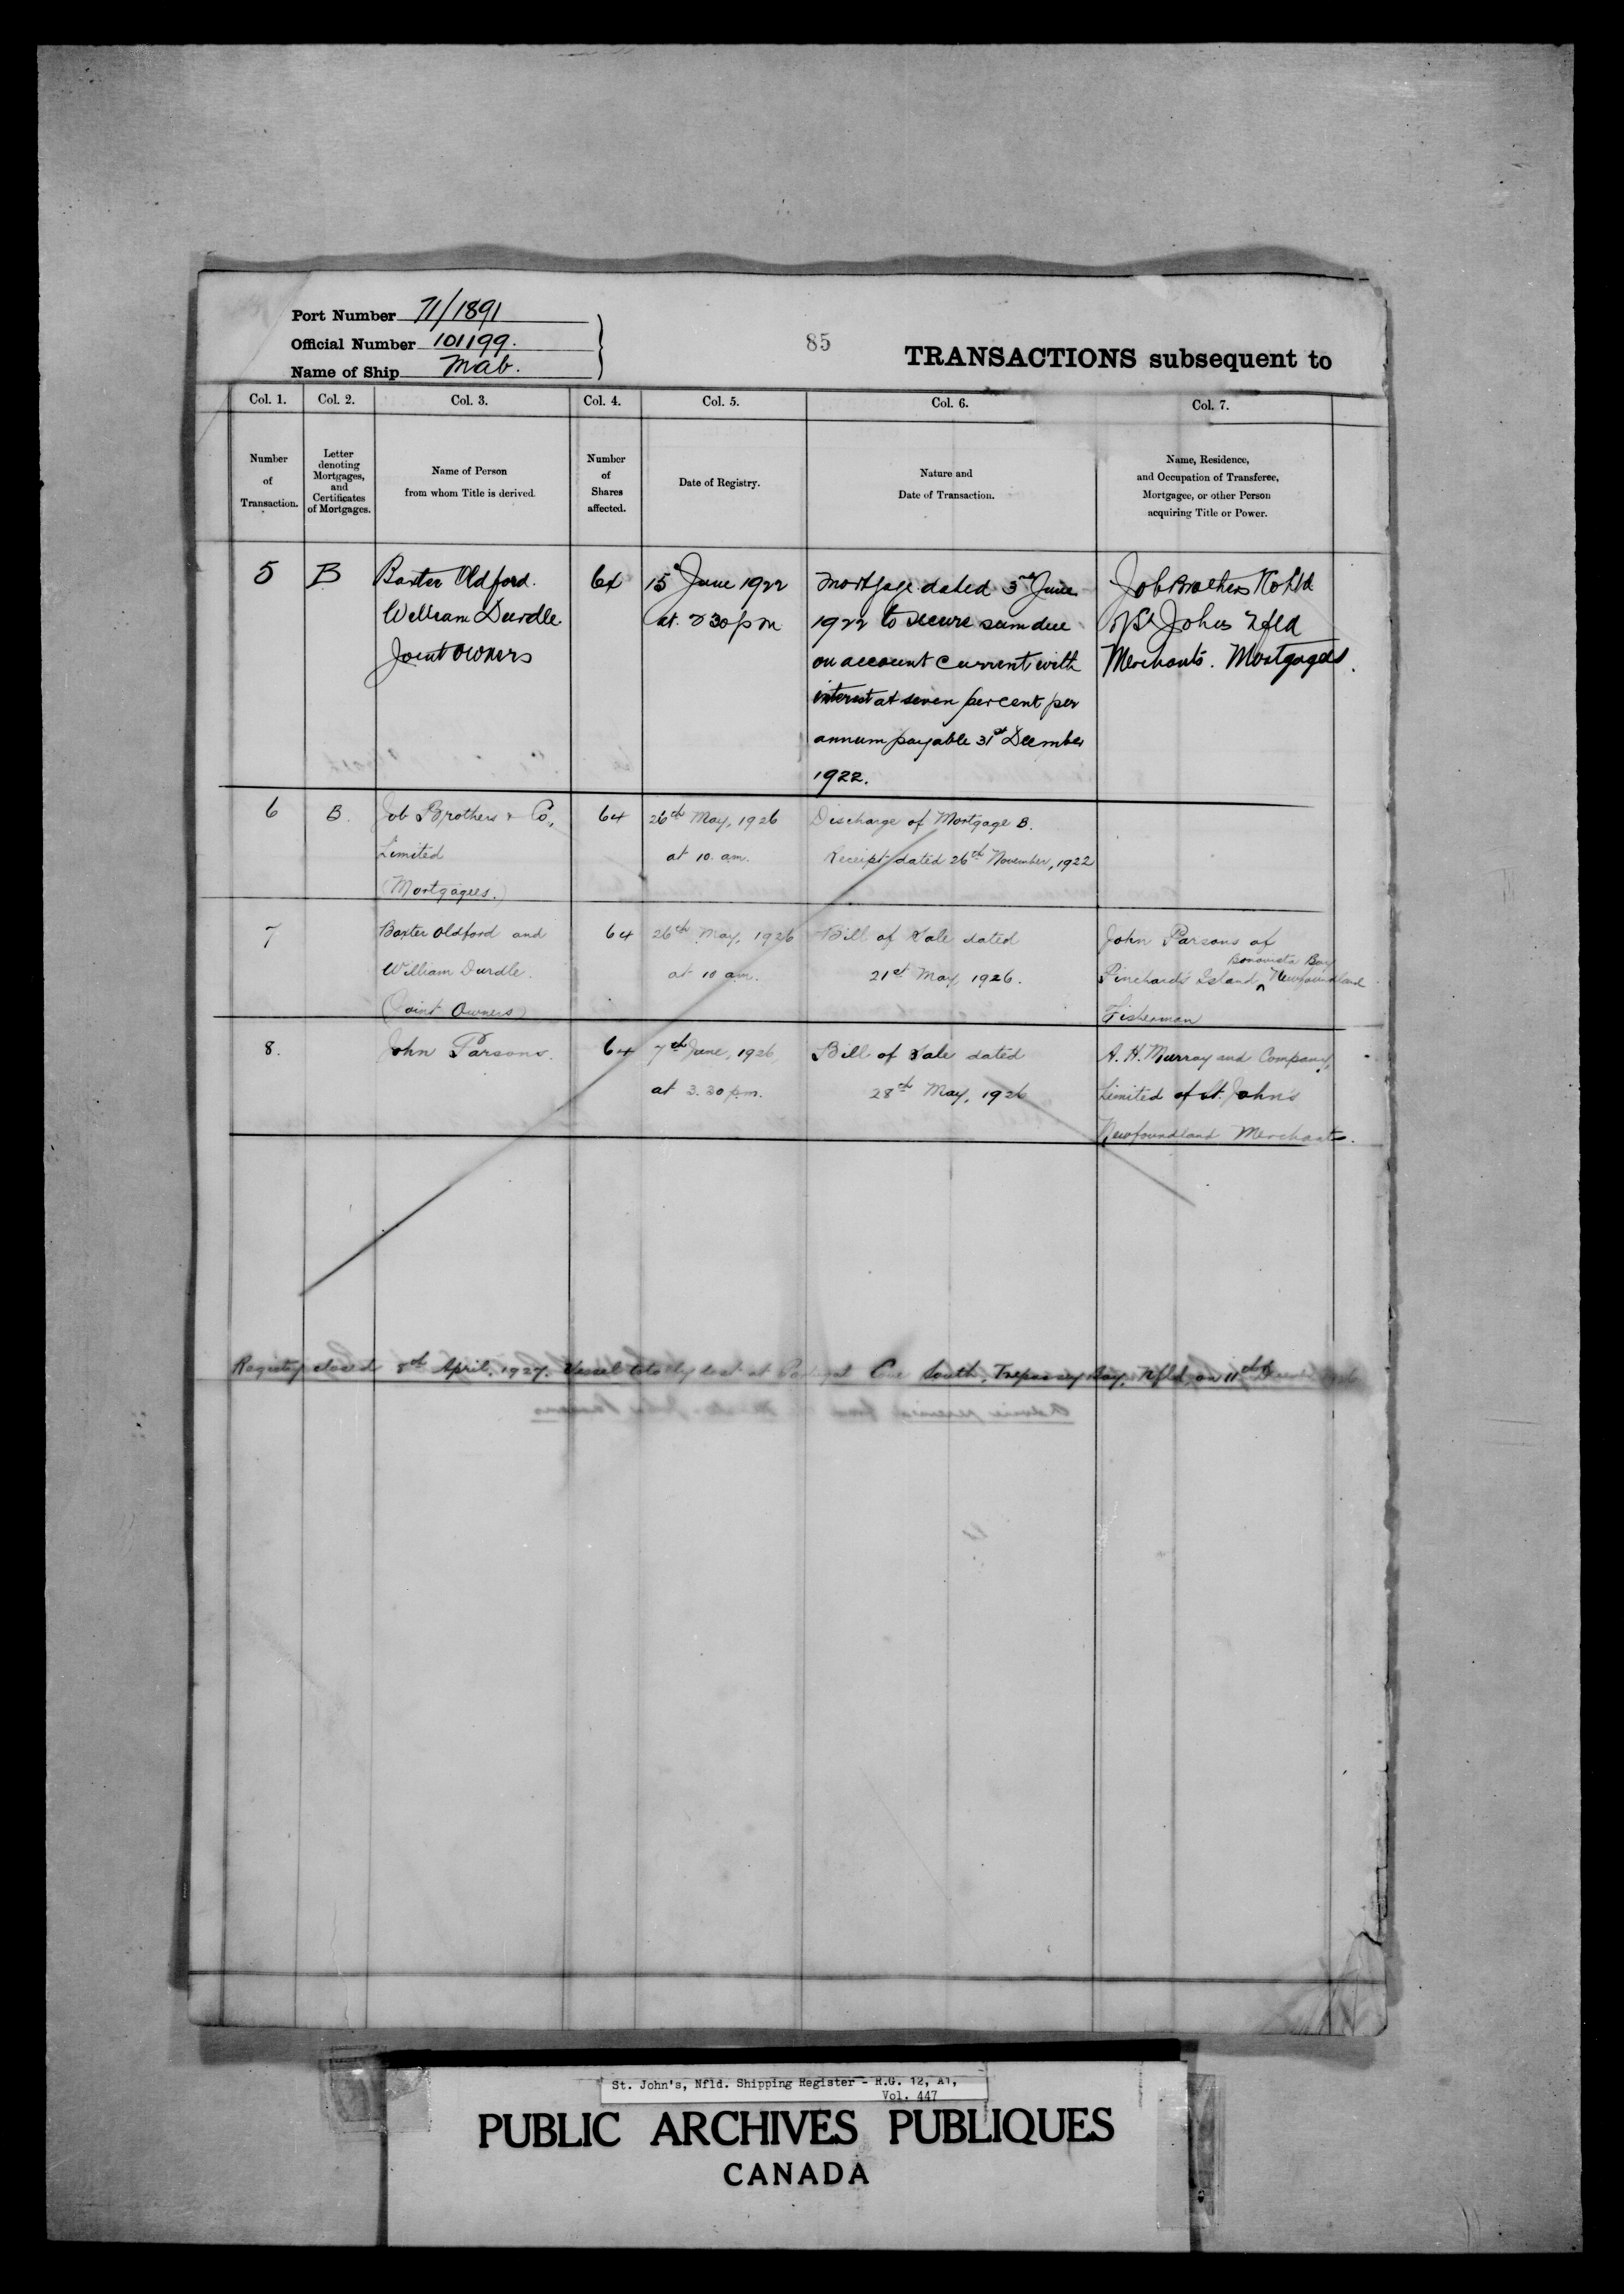 Port Number 71/1891
Official Number 101199.
Name of Ship Mab.
85
TRANSACTIONS subsequent to
Col. 1. Col. 2. Col. 3. Col. 4. Col. 5. Col. 6. Col. 7.
Number
of
Transaction.
Letter
denoting
Mortgages,
and
Certificates
of Mortgages.
Name of Person
from whom Title is derived.
Number
of
Shares
affected.
Date of Registry.
Nature and
Date of Transaction.
Name, Residence,
and Occupation of Transferee,
Mortgagee, or other Person
acquiring Title or Power.
5
B
Baxter Oldford.
William Durdle.
Joint Owners
64
15 June 1922
at 2 30 pm
Mortgage dated 3rd June
1922 to secure sum due
on account current with
interest at seven per cent per
annum payable 31st December
1922.
Job Brothers & Co Ltd
of St Johns Nfld
Merchants. Mortgagees.
6
B.
Job Brothers & Co,
Limited
(Mortgagees.)
64
26th May, 1926
at 10. am.
Discharge of Mortgage B.
Receipt dated 26th November, 1922
7
Baxter Oldford and
William Durdle.
(Joint Owners)
64
26th May, 1926
at 10 am.
Bill of Sale dated
21st May 1926.
John Parsons of
Bonavista Bay
Pinchard's Island ^ Newfoundland
Fisherman
8.
John Parsons.
64
7th June, 1926
at 3.30 p.m.
Bill of Sale dated
28th May, 1926
A. H. Murray and Company,
Limited of St. John's
Newfoundland Merchants.
Registry closed 8th April, 1927. Vessel totally lost at Portugal Cove South, Trepassey Bay, Nfld, on 11th December 1926
St. John's, Nfld. Shipping Register - R.G. 12, A1,
Vol. 447
PUBLIC ARCHIVES PUBLIQUES
CANADA